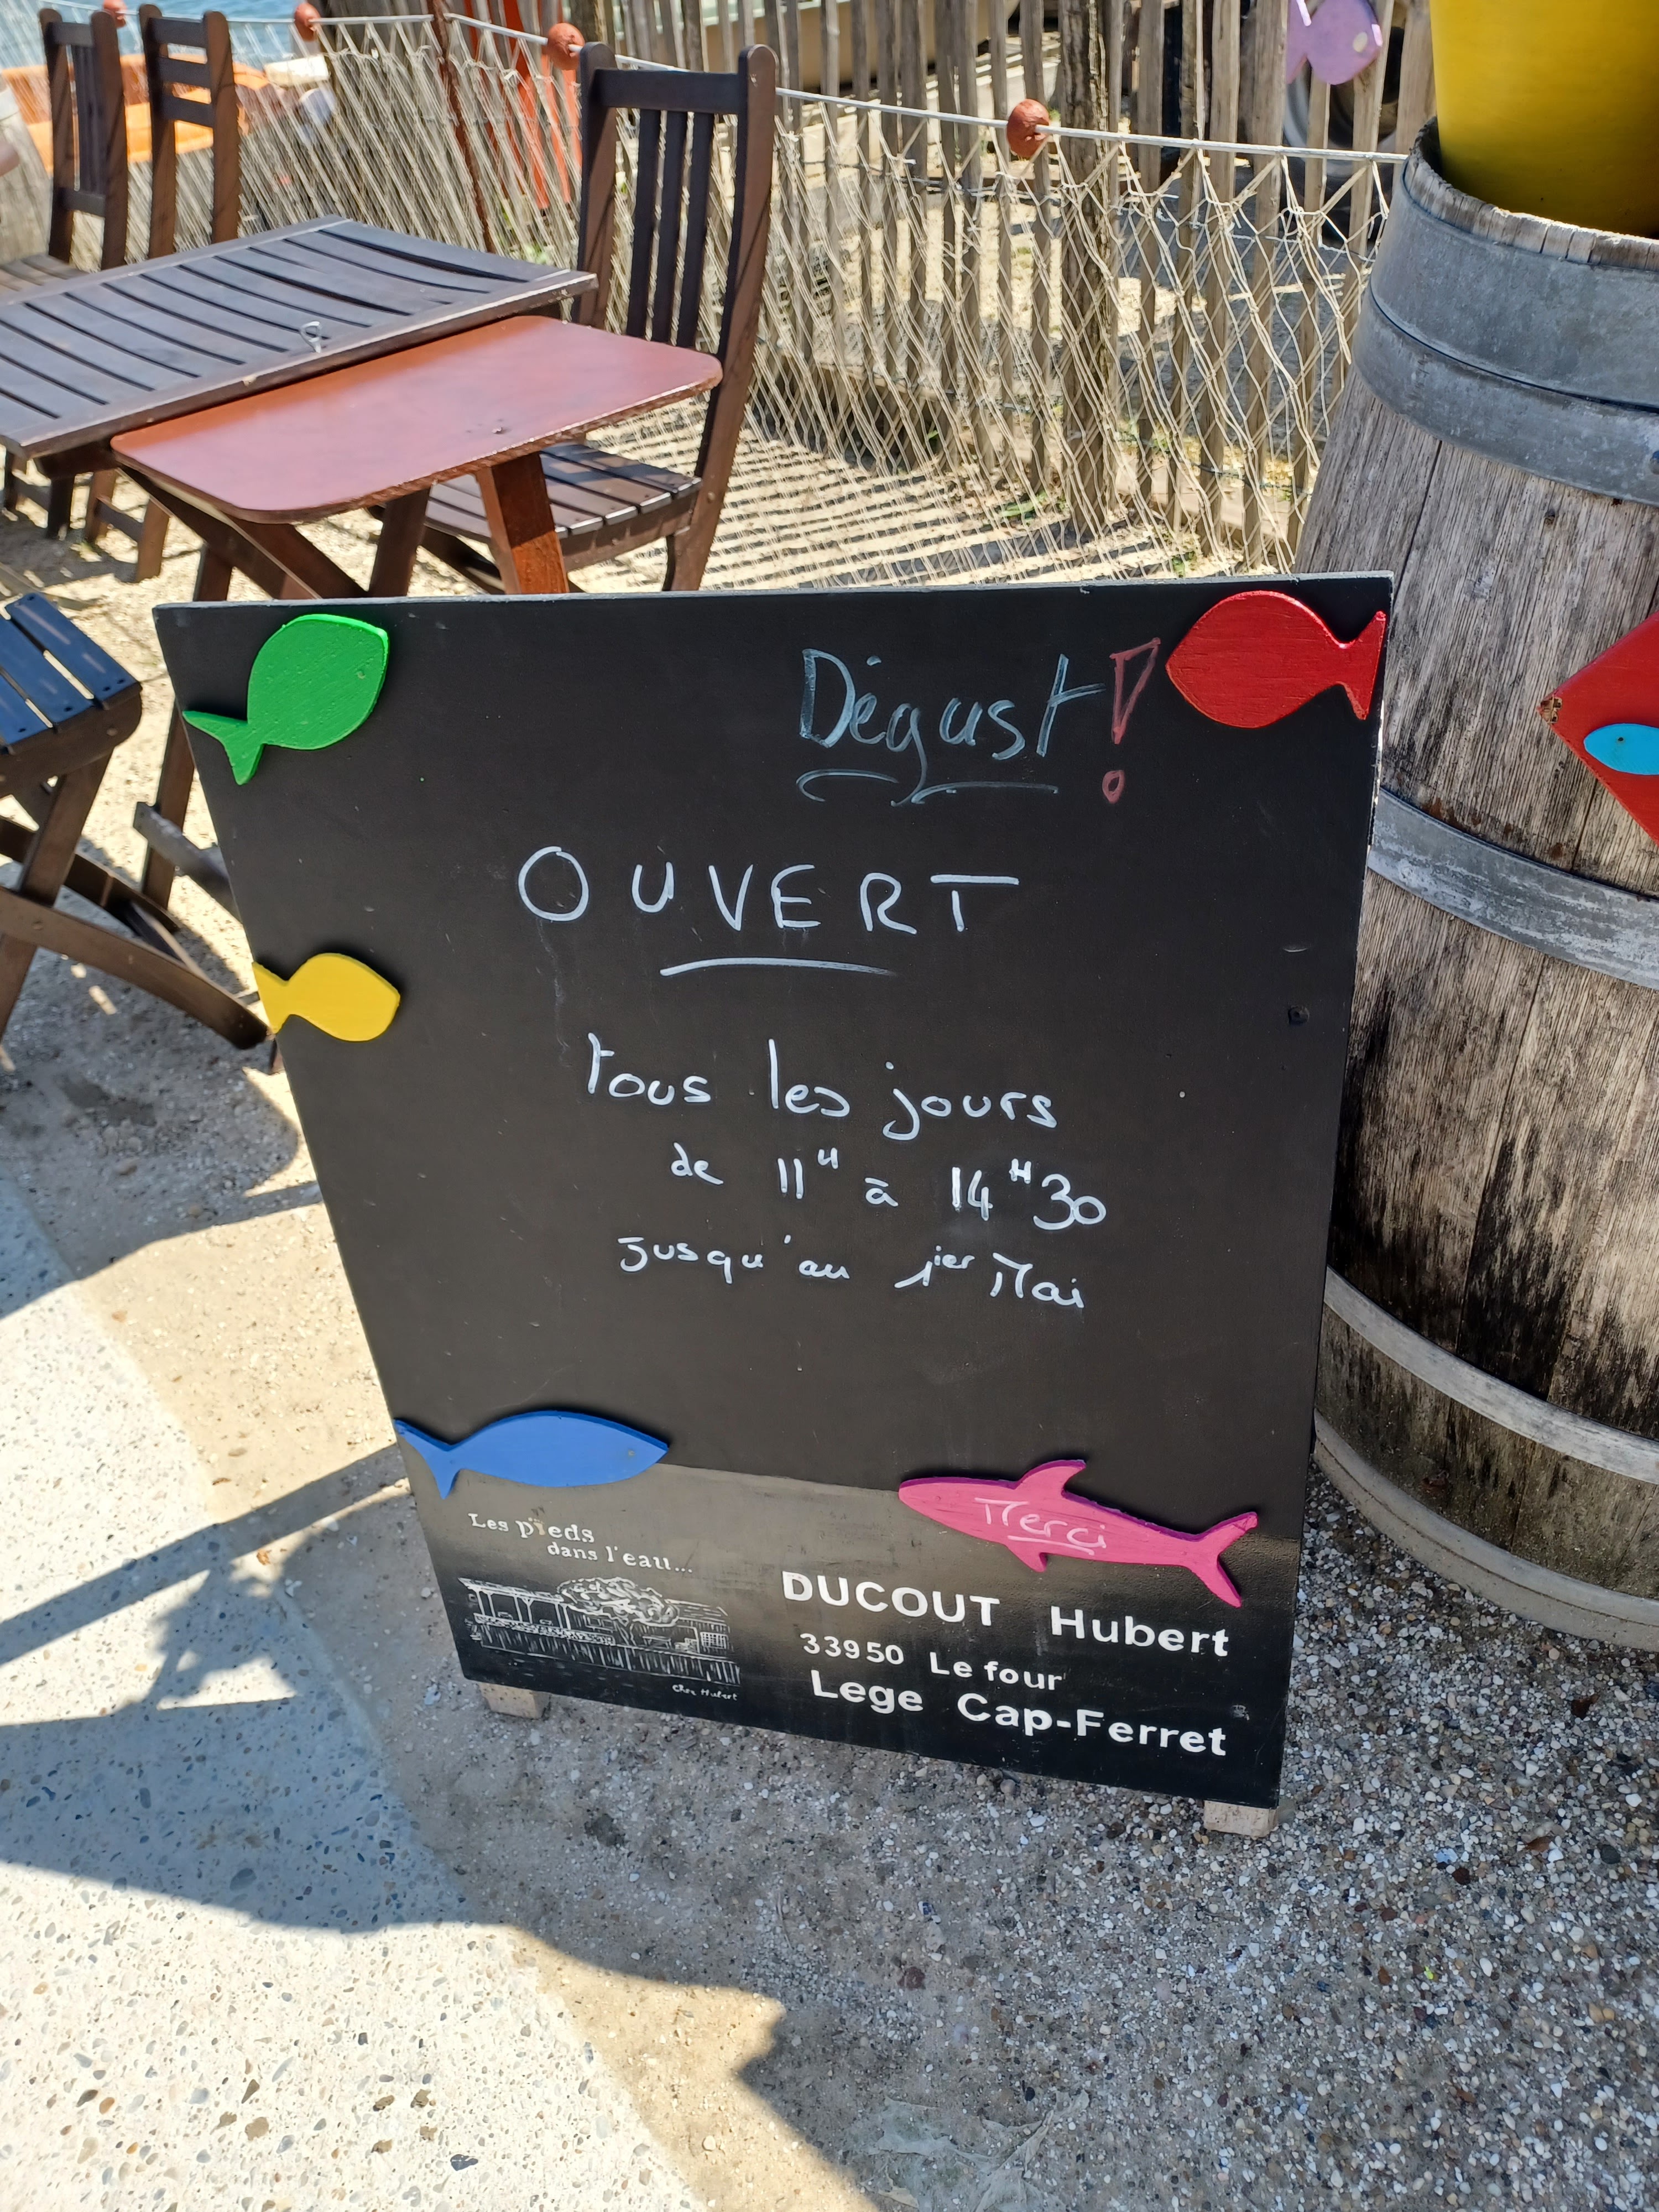 Dégust!
OUVERT
tous les jours
de 11H à 14H30
jusqu'au 1ier Mai
Merci
Les pieds
dans l'eau...
Chez Hubert
DUCOUT Hubert
33950 Le four
Lege Cap-Ferret